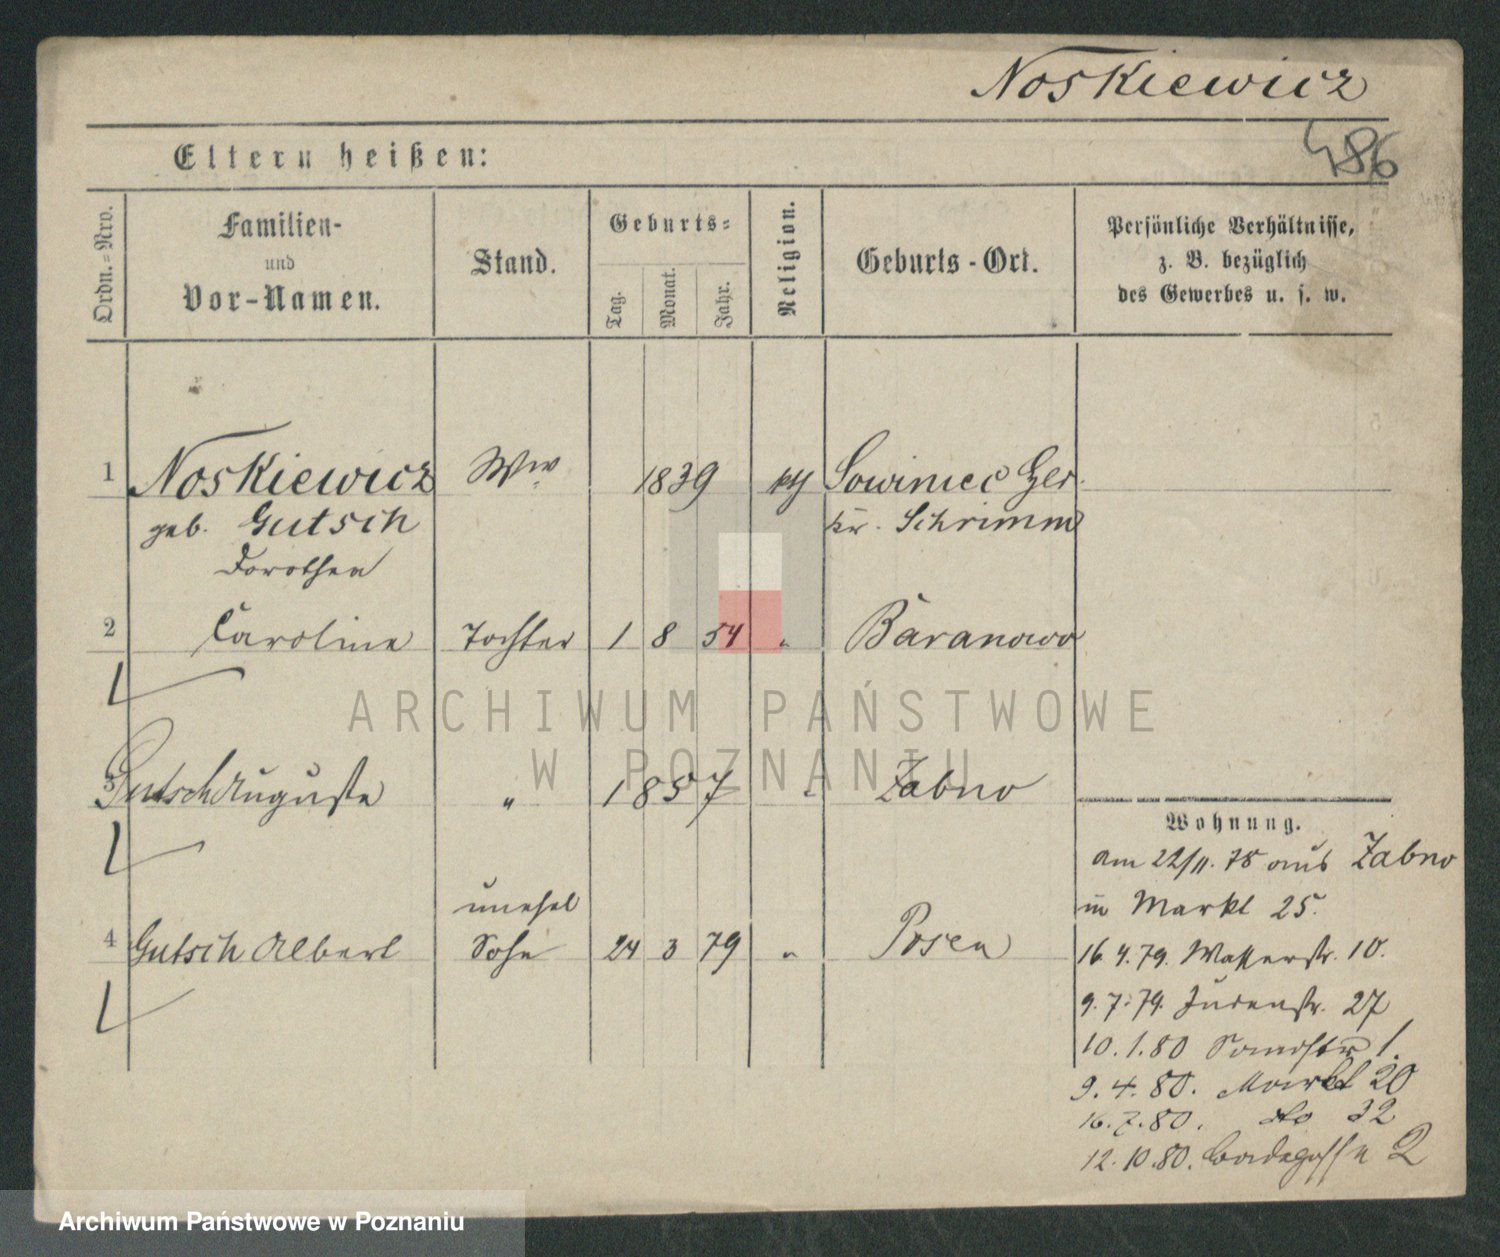 Noskiewicz
486
Eltern heißen:
Ordn.=Nro.
Familien-
und
Vor-Namen.
Stand.
Geburts=
Tag.
Monat.
Jahr.
Religion.
Geburts-Ort.
Persönliche Verhältnisse,
z. B. bezüglich
des Gewerbes u. s. w.
1 Noskiewicz Ww. 1839 kth Sowiniec Ger.
geb. Gutsch kr. Schrimm
Dorothea
2 Caroline Tochter 1 8 54 " Baranowo
3 Gutsch Auguste " 1857 " Zabno
unehel
4 Gutsch Albert Sohn 24 3 79 " Posen
Wohnung.
am 22/11. 78 aus Zabno
in Markt 25.
16.4.79. Wasserstr. 10.
9.7.79. Judenstr. 27
10.1.80 Sandstr 1.
9.4.80. Markt 20
16.7.80. do 32
12.10.80. Badegasse 2
ARCHIWUM PAŃSTWOWE
W POZNANIU
Archiwum Państwowe w Poznaniu